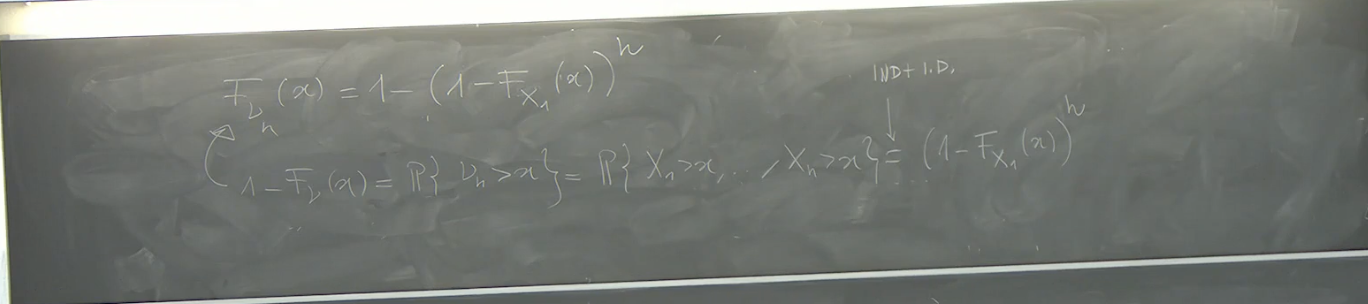 F_{ν_n}(x) = 1 - (1 - F_{X_1}(x))^n
IND + I.D.
1 - F_ν(x) = P{ν_n > x} = P{X_1 > x, ..., X_n > x} = (1 - F_{X_1}(x))^n